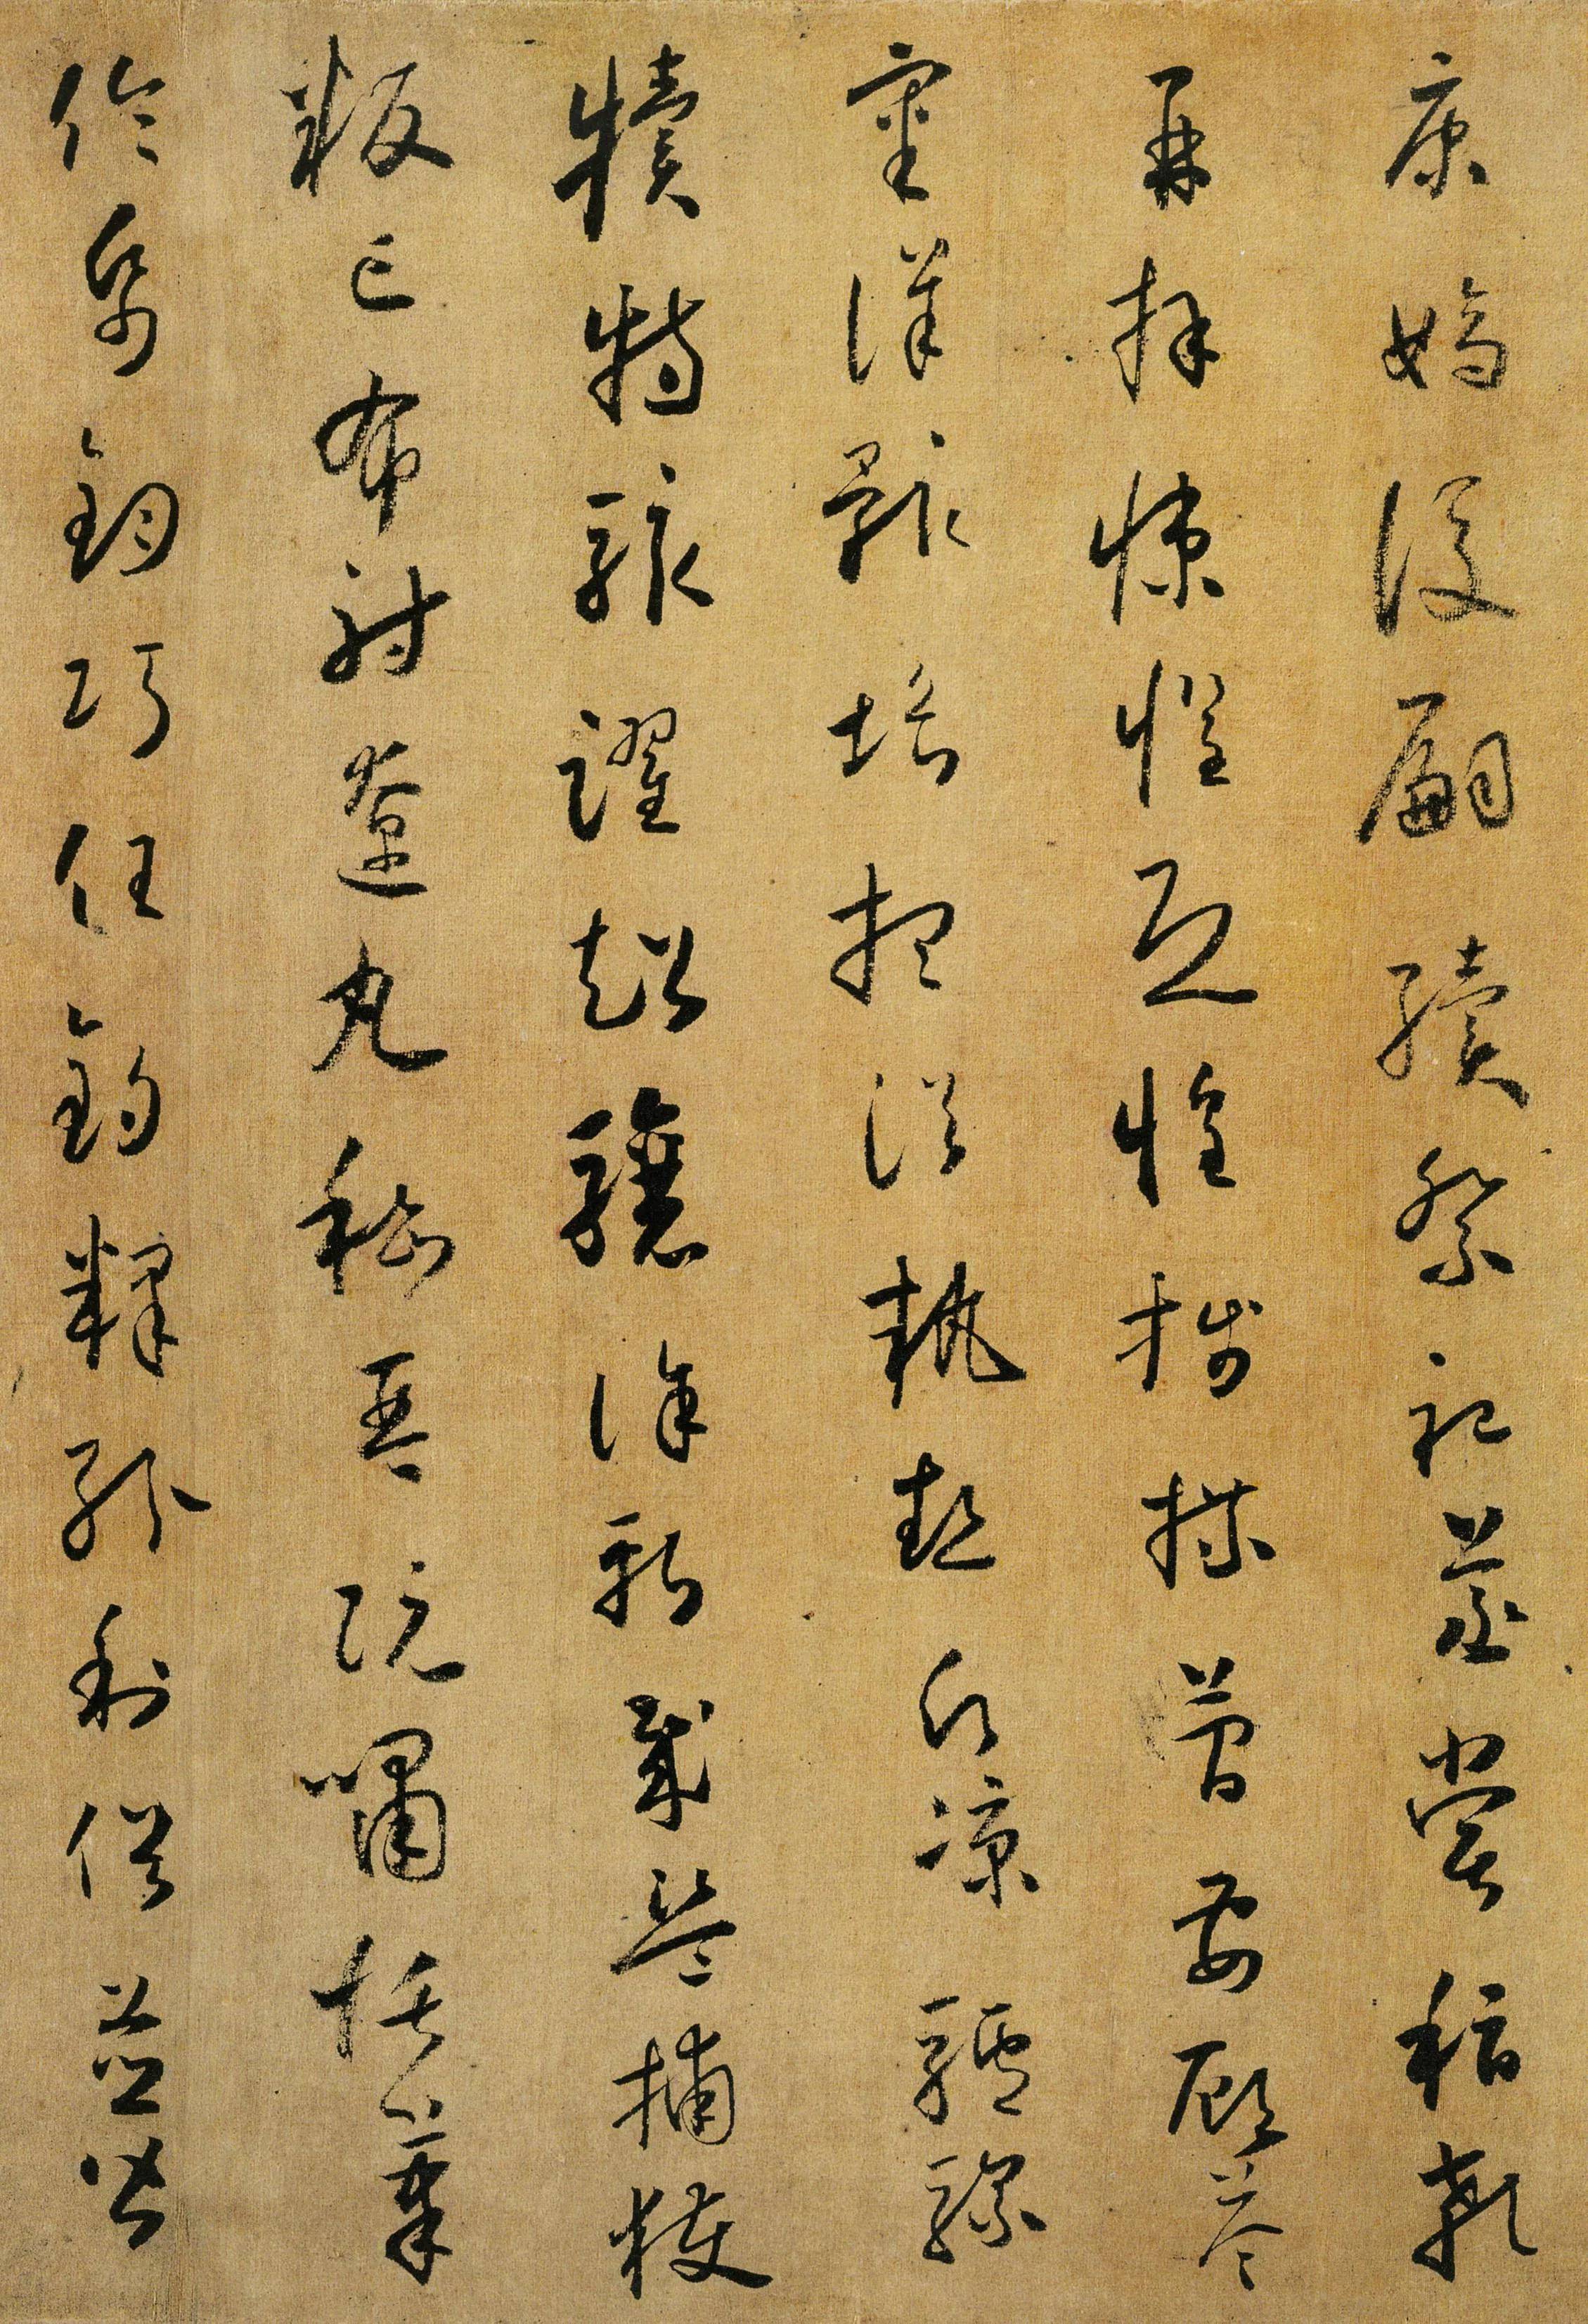 康嫡後嗣續祭祀蒸嘗稽顙
再拜悚懼恐惶牋牒簡要顧答
審詳骸垢想浴執熱願凉驢騾
犢特駭躍超驤誅斬賊盜捕獲
叛亡布射遼丸嵇琴阮嘯恬筆
倫紙鈞巧任釣釋紛利俗並皆